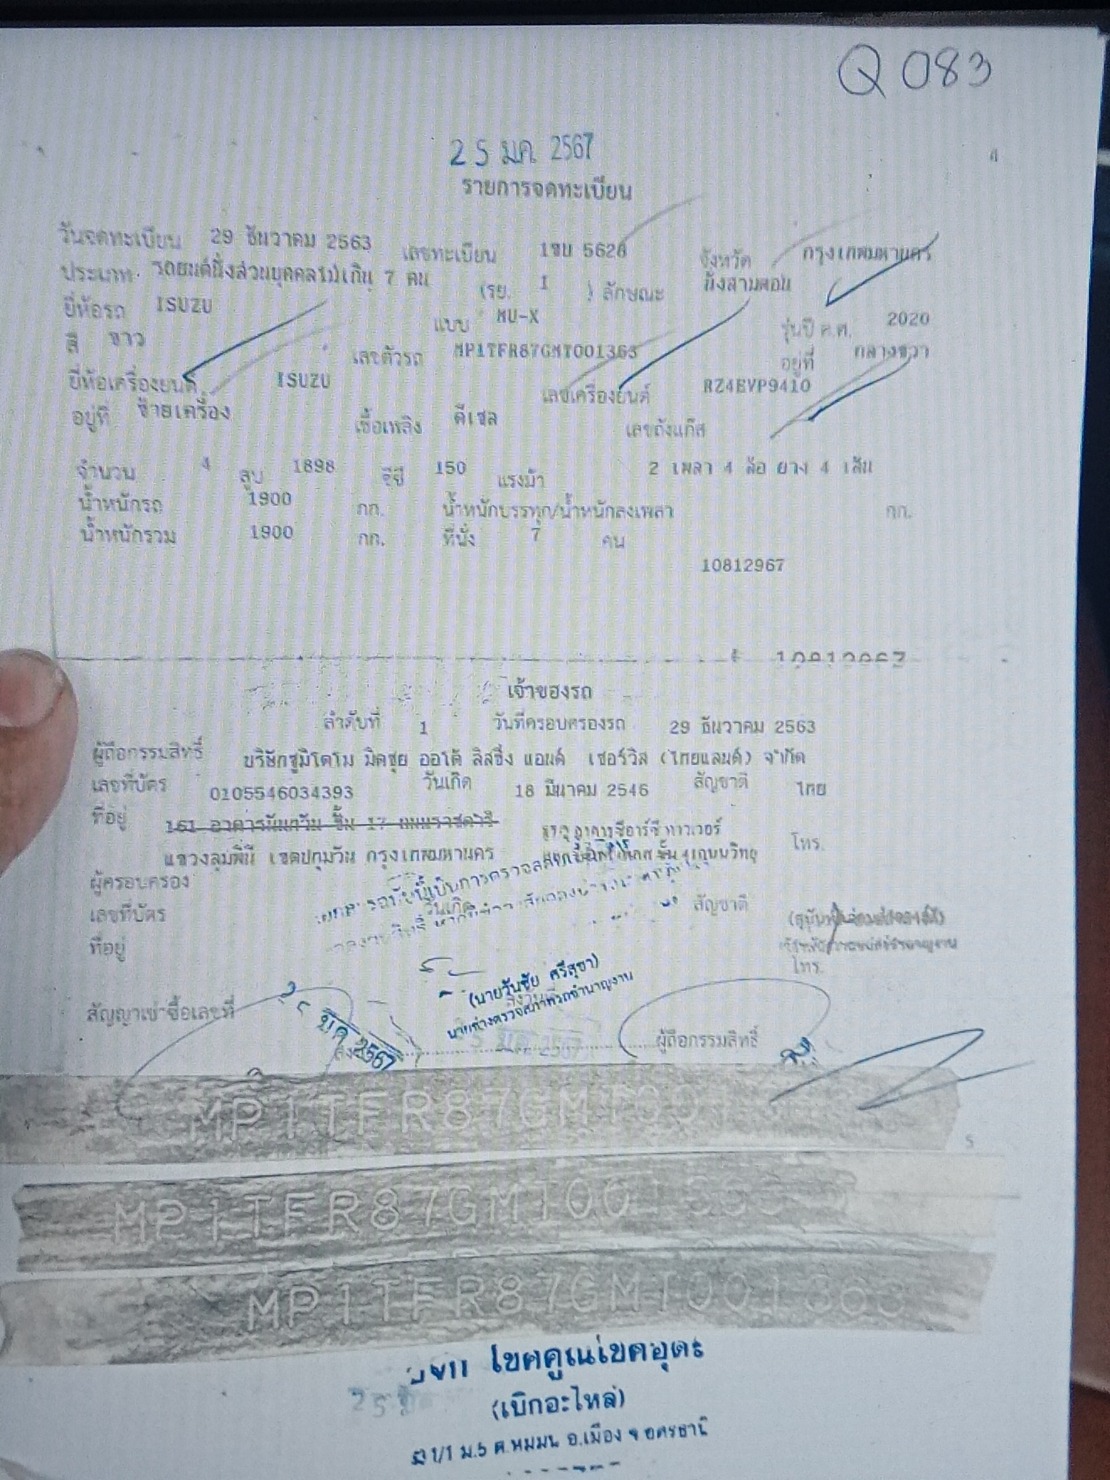 Q 083
25 มค. 2567
4
รายการจดทะเบียน
วันจดทะเบียน 29 ธันวาคม 2563 เลขทะเบียน 1ขบ 5628 จังหวัด กรุงเทพมหานคร
ประเภท รถยนต์นั่งส่วนบุคคลไม่เกิน 7 คน (รย. 1 ) ลักษณะ นั่งสามตอน
ยี่ห้อรถ ISUZU แบบ MU-X รุ่นปี ค.ศ. 2020
สี ขาว เลขตัวรถ MP1TFR87GMT001363 อยู่ที่ กลางขวา
ยี่ห้อเครื่องยนต์ ISUZU เลขเครื่องยนต์ RZ4EVP9410
อยู่ที่ ซ้ายเครื่อง เชื้อเพลิง ดีเซล เลขถังแก๊ส
จำนวน 4 สูบ 1898 ซีซี 150 แรงม้า 2 เพลา 4 ล้อ ยาง 4 เส้น
น้ำหนักรถ 1900 กก. น้ำหนักบรรทุก/น้ำหนักลงเพลา กก.
น้ำหนักรวม 1900 กก. ที่นั่ง 7 คน
10812967
10812967
เจ้าของรถ
ลำดับที่ 1 วันที่ครอบครองรถ 29 ธันวาคม 2563
ผู้ถือกรรมสิทธิ์ บริษัทซูมิโตโม มิตซุย ออโต้ ลิสซิ่ง แอนด์ เซอร์วิส (ไทยแลนด์) จำกัด
เลขที่บัตร 0105546034393 วันเกิด 18 มีนาคม 2546 สัญชาติ ไทย
ที่อยู่ 161 อาคารนันทวัน ชั้น 17 ถนนราชดำริ อาคารซีอาร์ซี ทาวเวอร์ โทร.
แขวงลุมพินี เขตปทุมวัน กรุงเทพมหานคร
ผู้ครอบครอง
เลขที่บัตร วันเกิด สัญชาติ
ที่อยู่ โทร.
(นายวันชัย ศรีสุขา)
นายช่างตรวจสภาพรถชำนาญงาน
สัญญาเช่าซื้อเลขที่ ลงวันที่
มค 2567
ผู้ถือกรรมสิทธิ์
MP1TFR87GMT001363
5
MP1TFR87GMT001363
MP1TFR87GMT001363
โขคคูณโขคอุดร
(เบิกอะไหล่)
1/1 ม.5 ต.หมูม่น อ.เมือง จ อุดรธานี